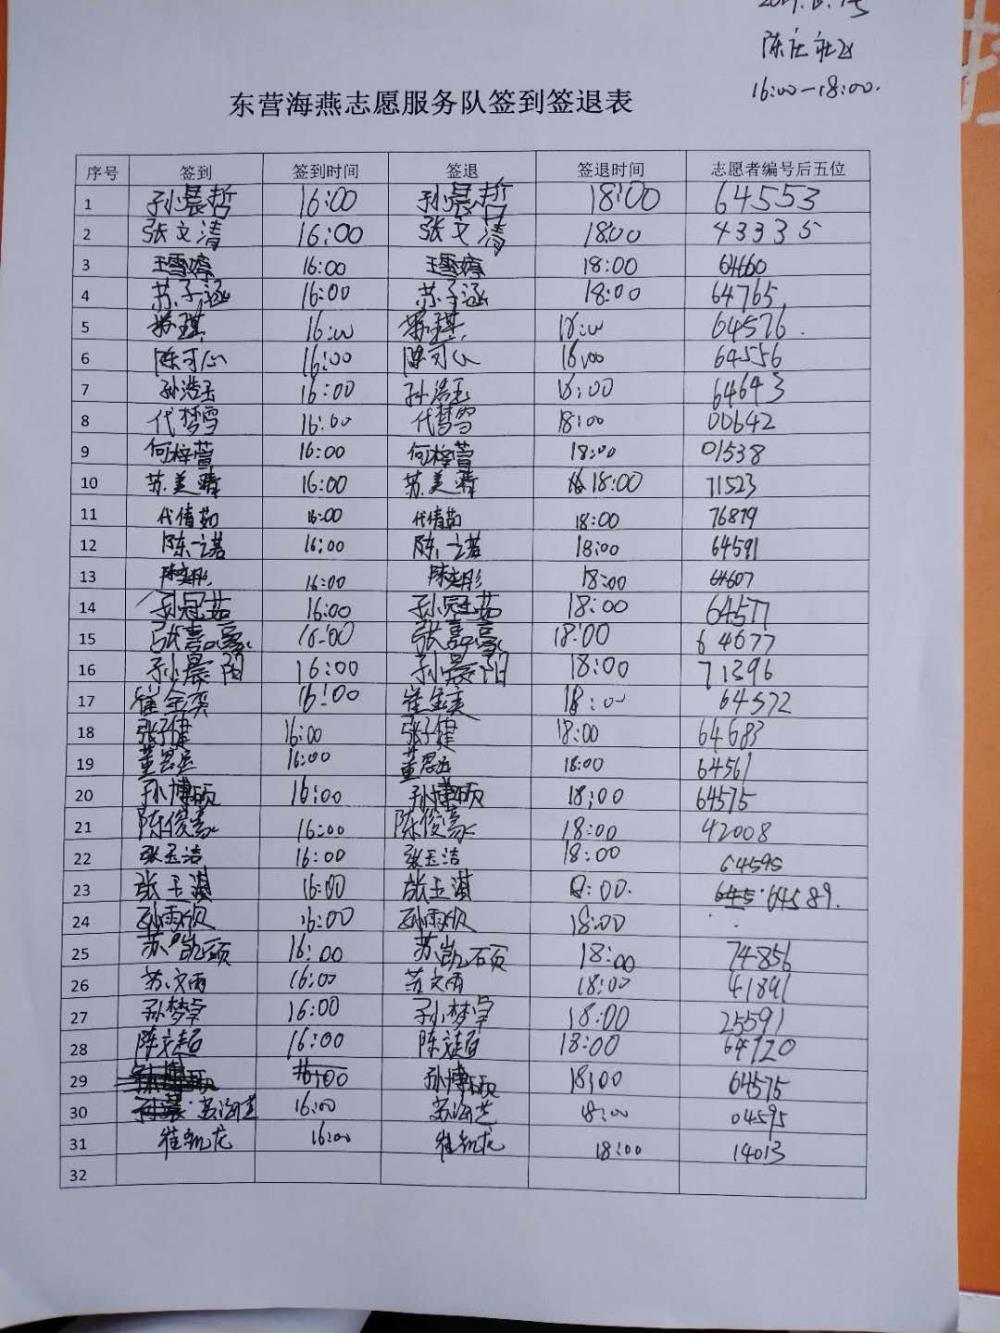 陈庄社区
16:00—18:00.
东营海燕志愿服务队签到签退表
序号 签到 签到时间 签退 签退时间 志愿者编号后五位
1 孙晨哲 16:00 孙晨哲 18:00 64553
2 张文清 16:00 张文清 18:00 43335
3 王雪婷 16:00 王雪婷 18:00 64660
4 苏子涵 16:00 苏子涵 18:00 64765
5 16:00 18:00 64576.
6 陈可心 16:00 陈可心 18:00 64556
7 孙浩玉 16:00 孙浩玉 18:00 64643
8 代梦雪 16:00 代梦雪 18:00 00642
9 何梓萱 16:00 何梓萱 18:00 01538
10 苏美 16:00 苏美 18:00 71523
11 代倩茹 16:00 代倩茹 18:00 76879
12 陈一诺 16:00 陈一诺 18:00 64591
13 陈彤 16:00 陈彤 18:00 64607
14 孙冠茹 16:00 孙冠茹 18:00 64577
15 张嘉豪 16:00 张嘉豪 18:00 64677
16 孙晨阳 16:00 孙晨阳 18:00 71396
17 崔金奕 16:00 崔金奕 18:00 64572
18 张子健 16:00 张子健 18:00 64683
19 董 16:00 董 18:00 64561
20 孙博硕 16:00 孙博硕 18:00 64575
21 陈俊豪 16:00 陈俊豪 18:00 42008
22 张玉洁 16:00 张玉洁 18:00 64595
23 张玉淇 16:00 张玉淇 18:00. 645 64589.
24 孙雨欣 16:00 孙雨欣 18:00
25 苏凯硕 16:00 苏凯硕 18:00 74856
26 苏文雨 16:00 苏文雨 18:00 41891
27 孙梦卓 16:00 孙梦卓 18:00 25591
28 陈 16:00 陈 18:00 64720
29 孙博硕 16:00 孙博硕 18:00 64575
30 苏海 16:00 苏海 18:00 04595
31 崔凯龙 16:00 崔凯龙 18:00 14013
32